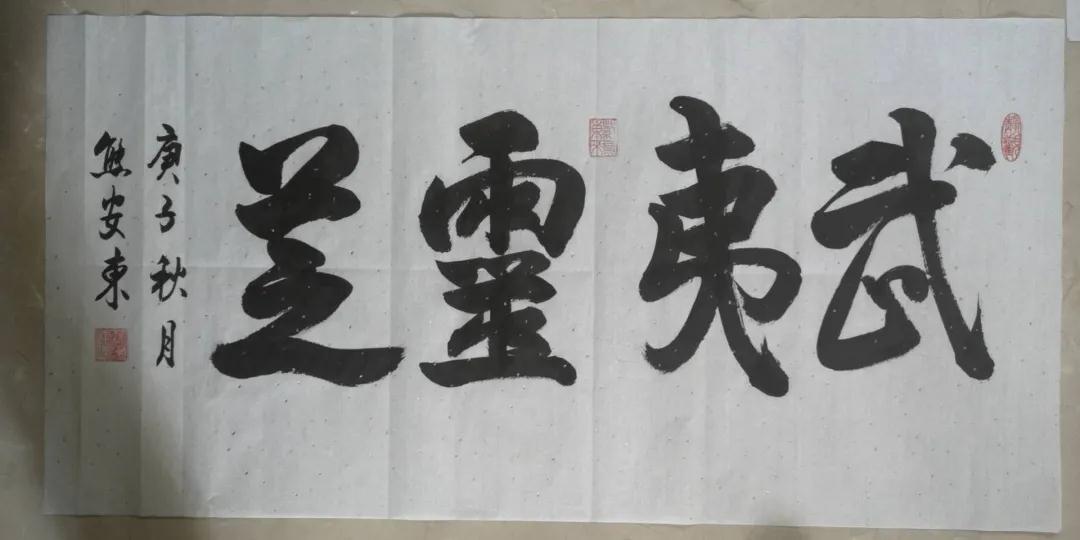 武夷靈芝
庚子秋月
熊安東